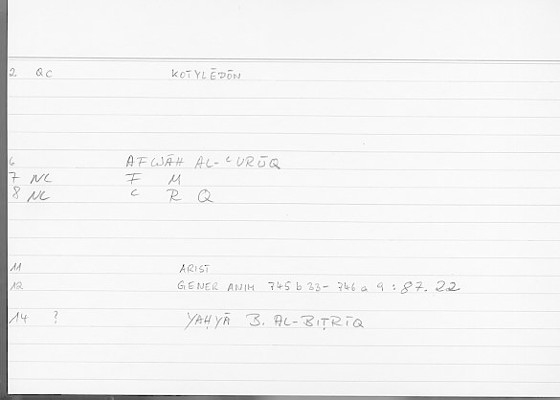 2 QC KOTYLĒDŌN
6 AFWĀH AL-ʿURŪQ
7 NL F M
8 NL ʿ R Q
11 ARIST
12 GENER ANIM 745 b 33 - 746 a 9 : 87.22
14 ? YAḤYĀ B. AL-BIṬRĪQ